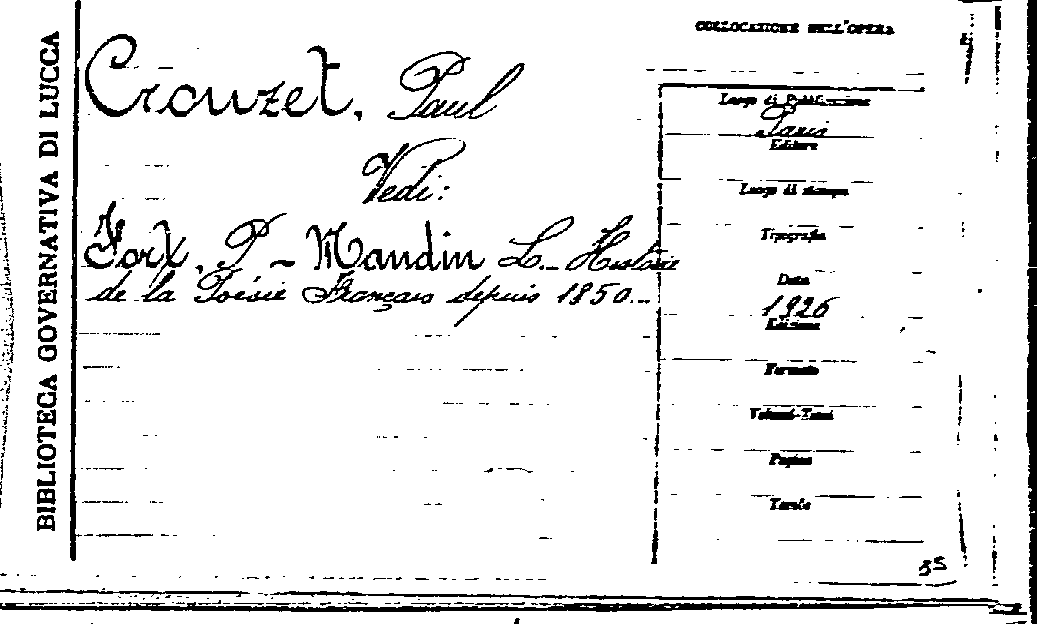 BIBLIOTECA GOVERNATIVA DI LUCCA
Crouzet, Paul
Vedi:
Fort, P - Mandin L. Histoire
de la Poésie Français depuis 1850.
COLLOCAZIONE DELL'OPERA
Luogo di Pubblicazione
Paris
Editore
Luogo di stampa
Tipografia
Data
1926
Edizione
Formato
Volumi-Tomi
Pagine
Tavole
35